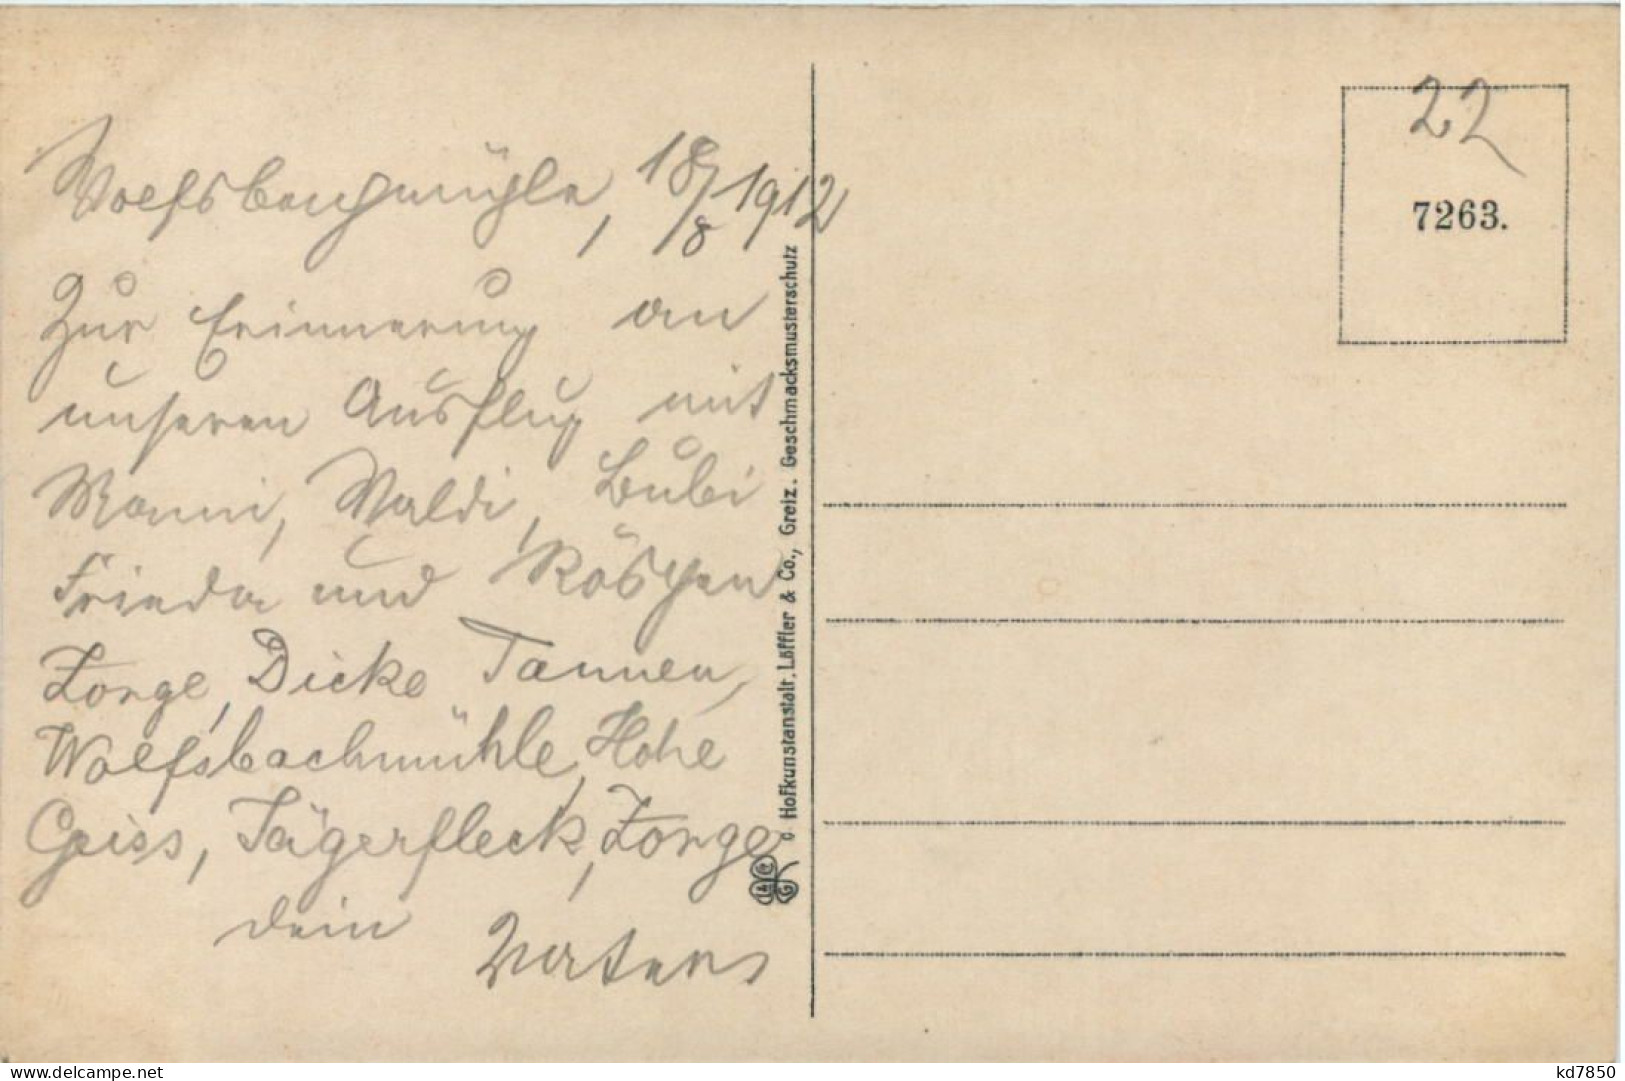 Wolfsbachmühle, 18/8 1912
Zur Erinnerung an
unseren Ausflug mit
Manni, Waldi, Bubi
Frieda und Röschen
Zorge, Dicke Tannen,
Wolfsbachmühle, Hohe
Geiss, Jägerfleck, Zorge
dein Vater
Hofkunstanstalt, Löffler & Co., Greiz. Geschmacksmusterschutz
L & C
G
22
7263.
www.delcampe.net
kd7850